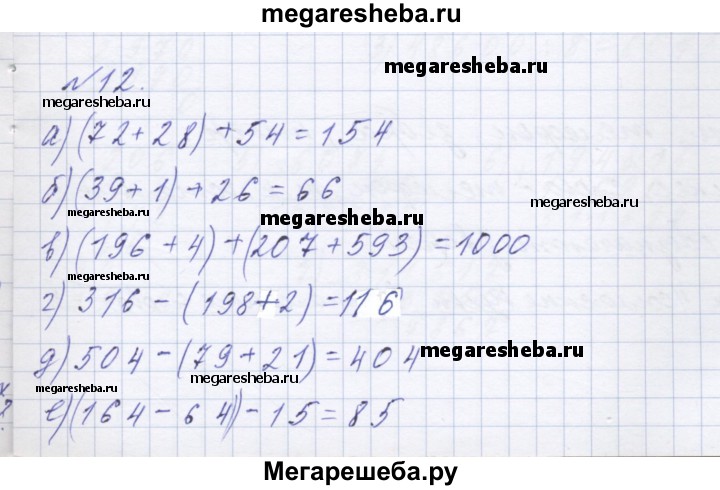 megaresheba.ru
№12.
megaresheba.ru
megaresheba.ru
а) (72+28)+54=154
б) (39+1)+26=66
megaresheba.ru
megaresheba.ru
megaresheba.ru
в) (196+4)+(207+593)=1000
г) 316-(198+2)=116
д) 504-(79+21)=404
megaresheba.ru
megaresheba.ru
megaresheba.ru
е) (164-64)-15=85
Мегарешеба.ру